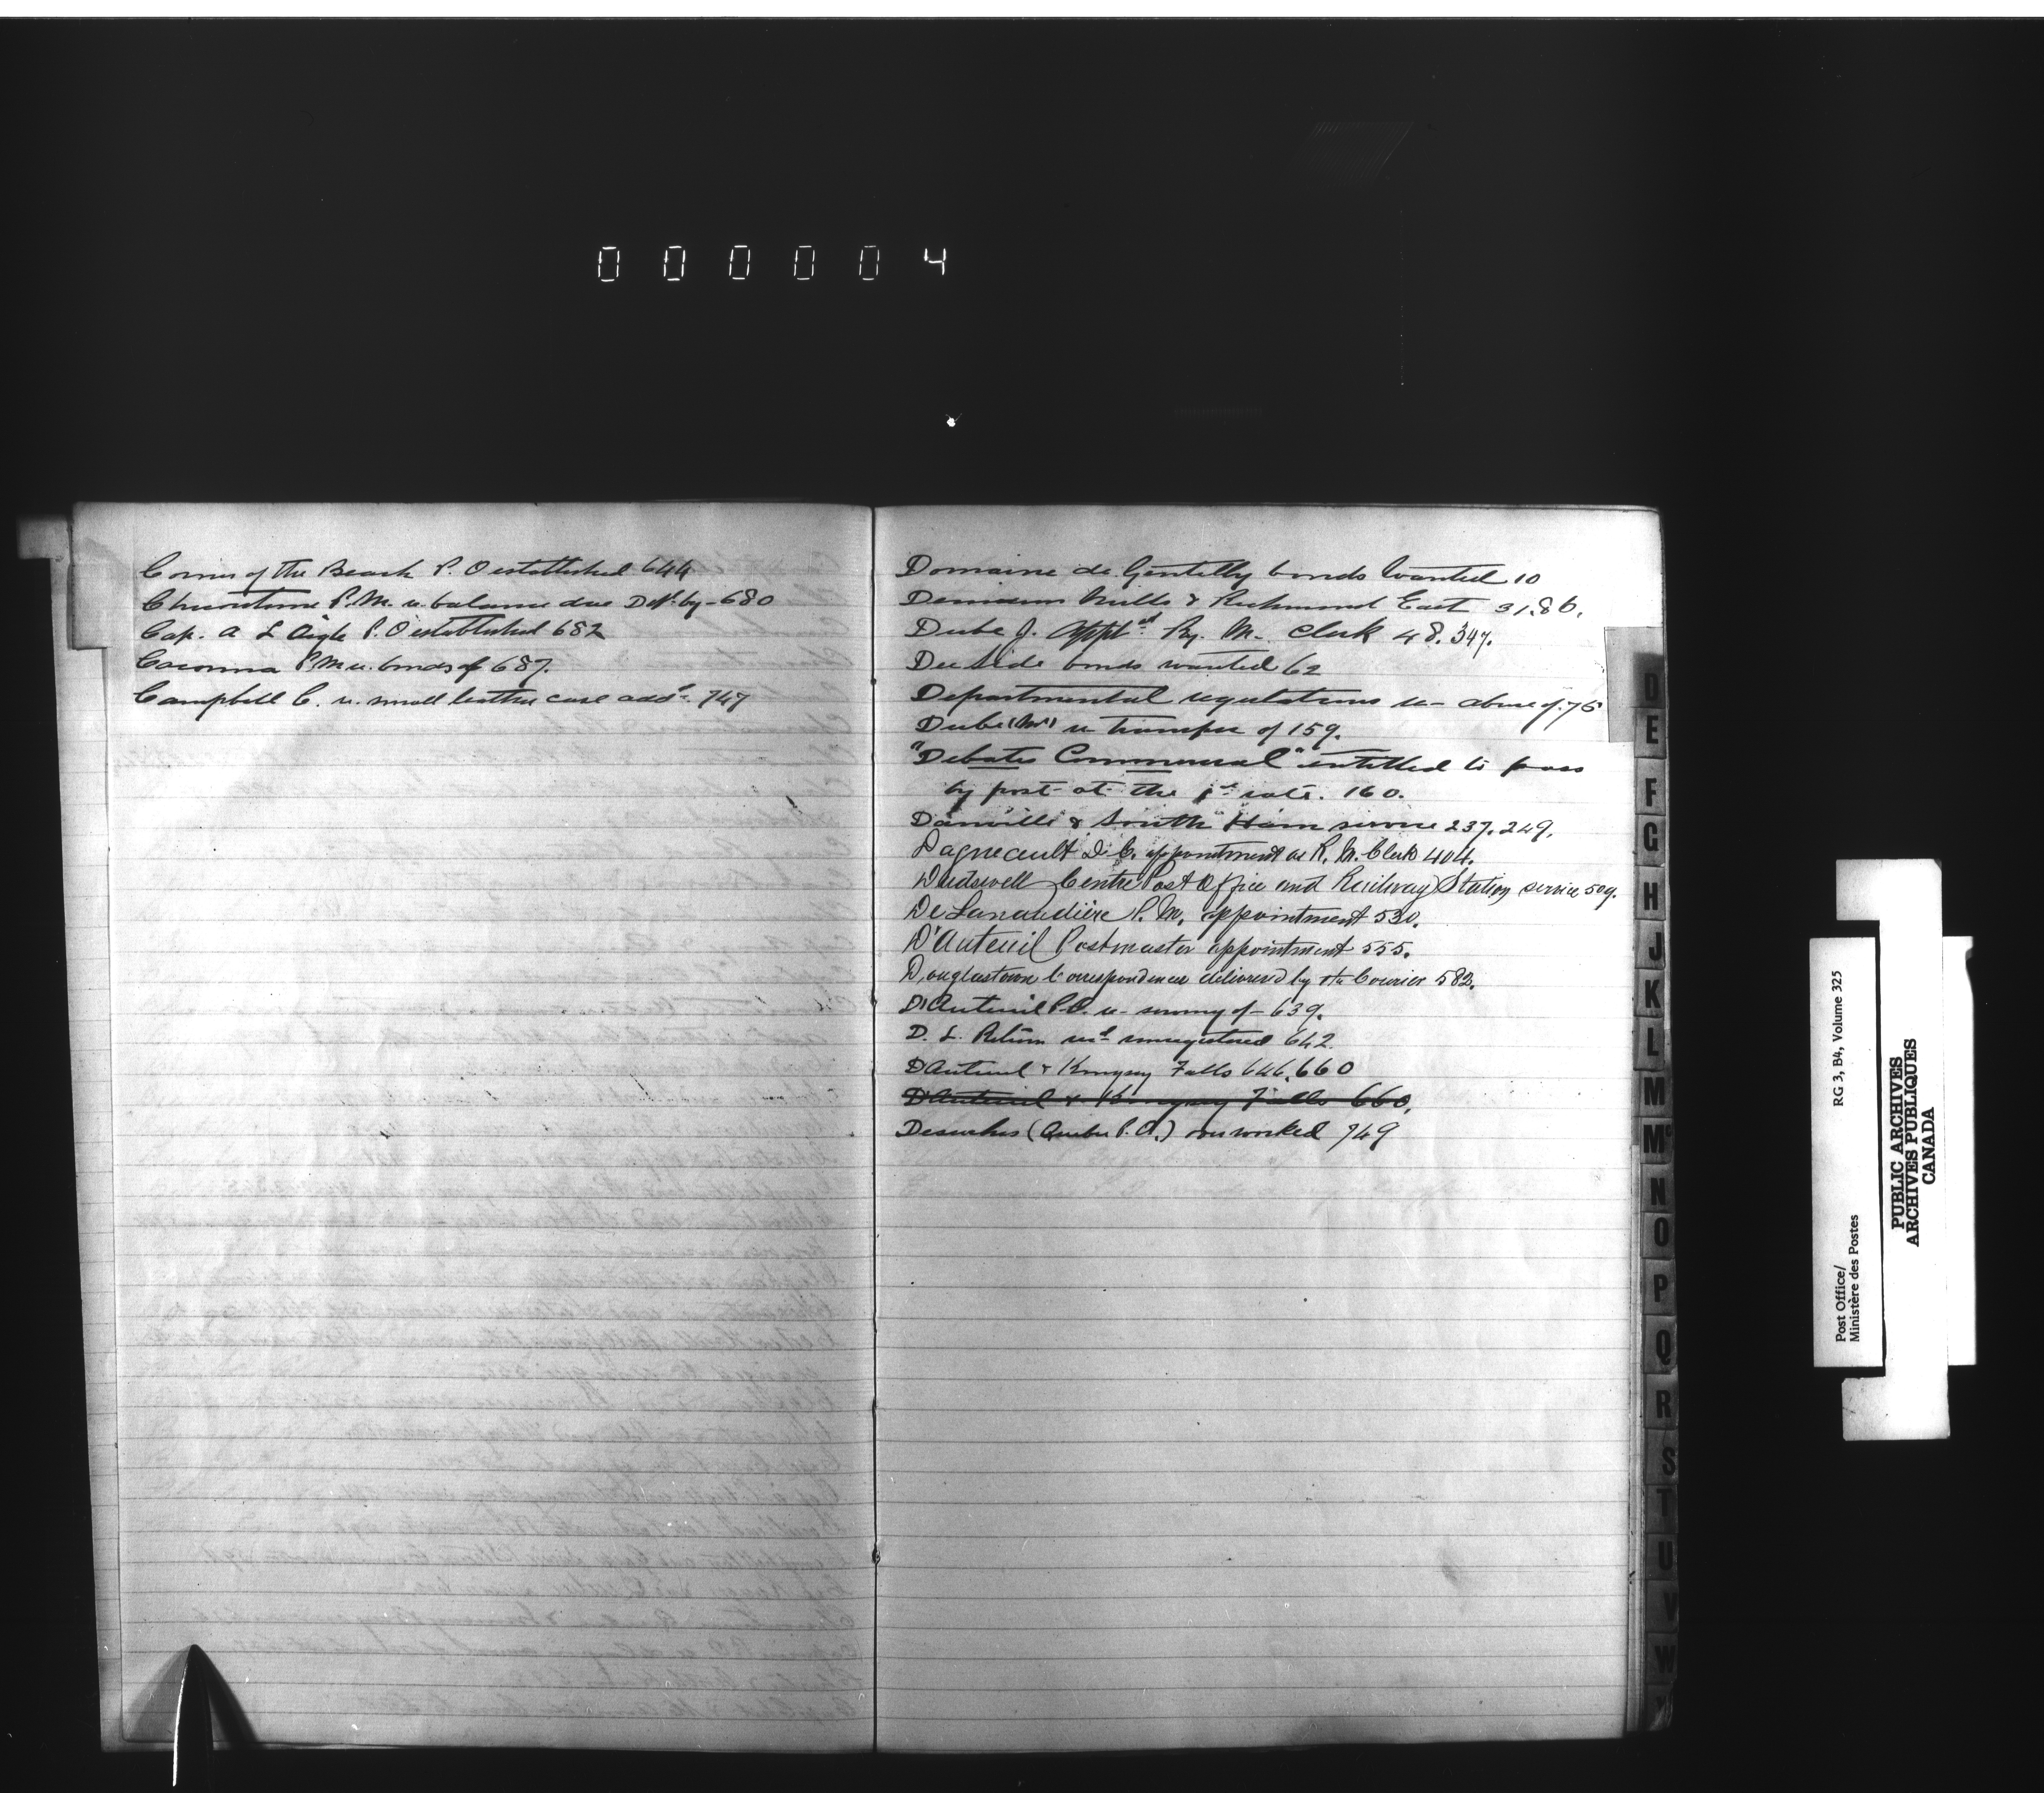 000004
Corner of the Beach P. O established 644
Chicoutimi P. M. re balance due Dept. by - 680
Cap. A L Aigle P. O established 682
Cacouna P. M re bonds of 687.
Campbell C. re small leather case addd. 747
Domaine de Gentilly bonds wanted 10
Denison Mills & Richmond East 31.86.
Dube J. apptd Ry. M. Clerk 48. 347.
Dee Side bonds wanted 62
Departmental regulations re - abuse of. 75
Dube (Mr) re transfer of 159.
"Debates Commercial" entitled to pass
by post at the 1st rate. 160.
Danville & South Ham service 237. 249.
Dagneault D. C. appointment as R. M. Clerk 404.
Dudswell Centre Post Office and Railway Station service 509.
De Lanaudière P. M. appointment 530.
D'Auteuil Postmaster appointment 555.
Douglastown Correspondences delivered by the Courier 582.
D'Auteuil P. O. re - survey of - 639.
D. L. Return recd unregistered 642.
D'Auteuil & Kingsey Falls 646. 660
D'Auteuil & Kingsey Falls 660.
(Quebec P. O.) overworked 749
D
E
F
G
H
J
K
L
M
Mc
N
O
P
Q
R
S
T
U
V
W
RG 3, B4, Volume 325
Post Office/
Ministère des Postes
PUBLIC ARCHIVES
ARCHIVES PUBLIQUES
CANADA